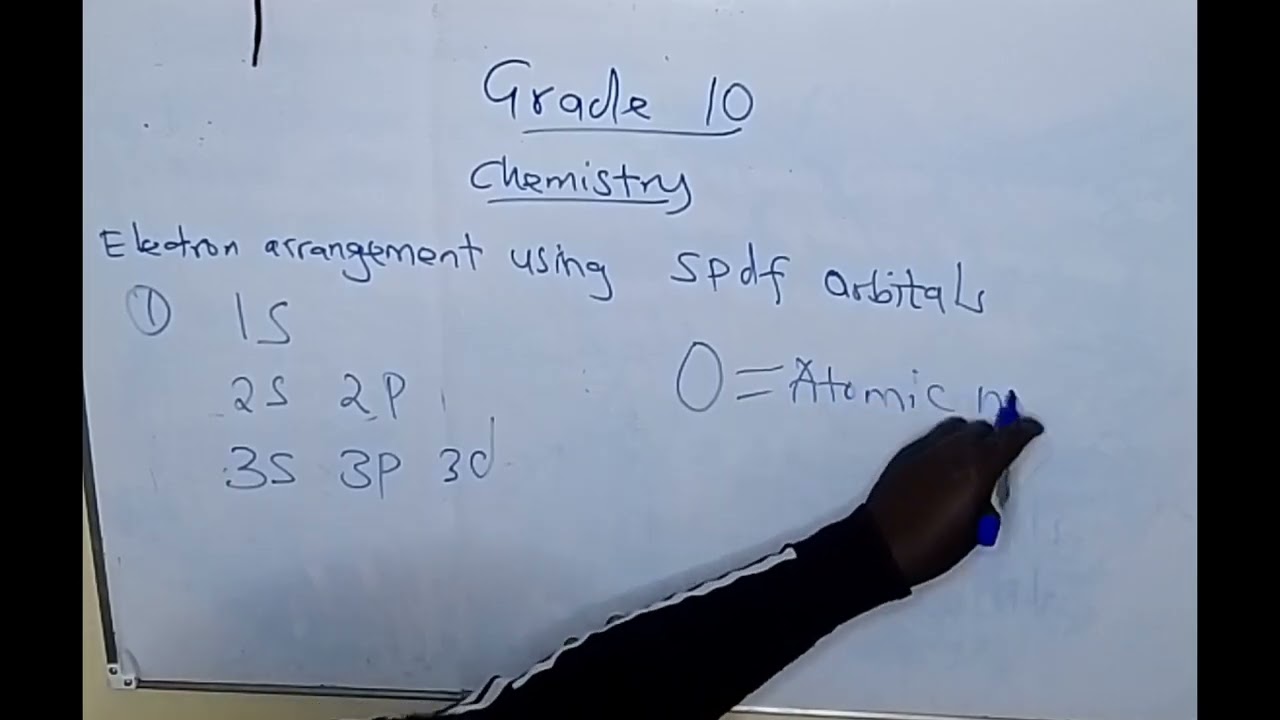 Grade 10
Chemistry
Electron arrangement using spdf orbitals
① 1S
2S 2P
3S 3P 3d
O = Atomic n